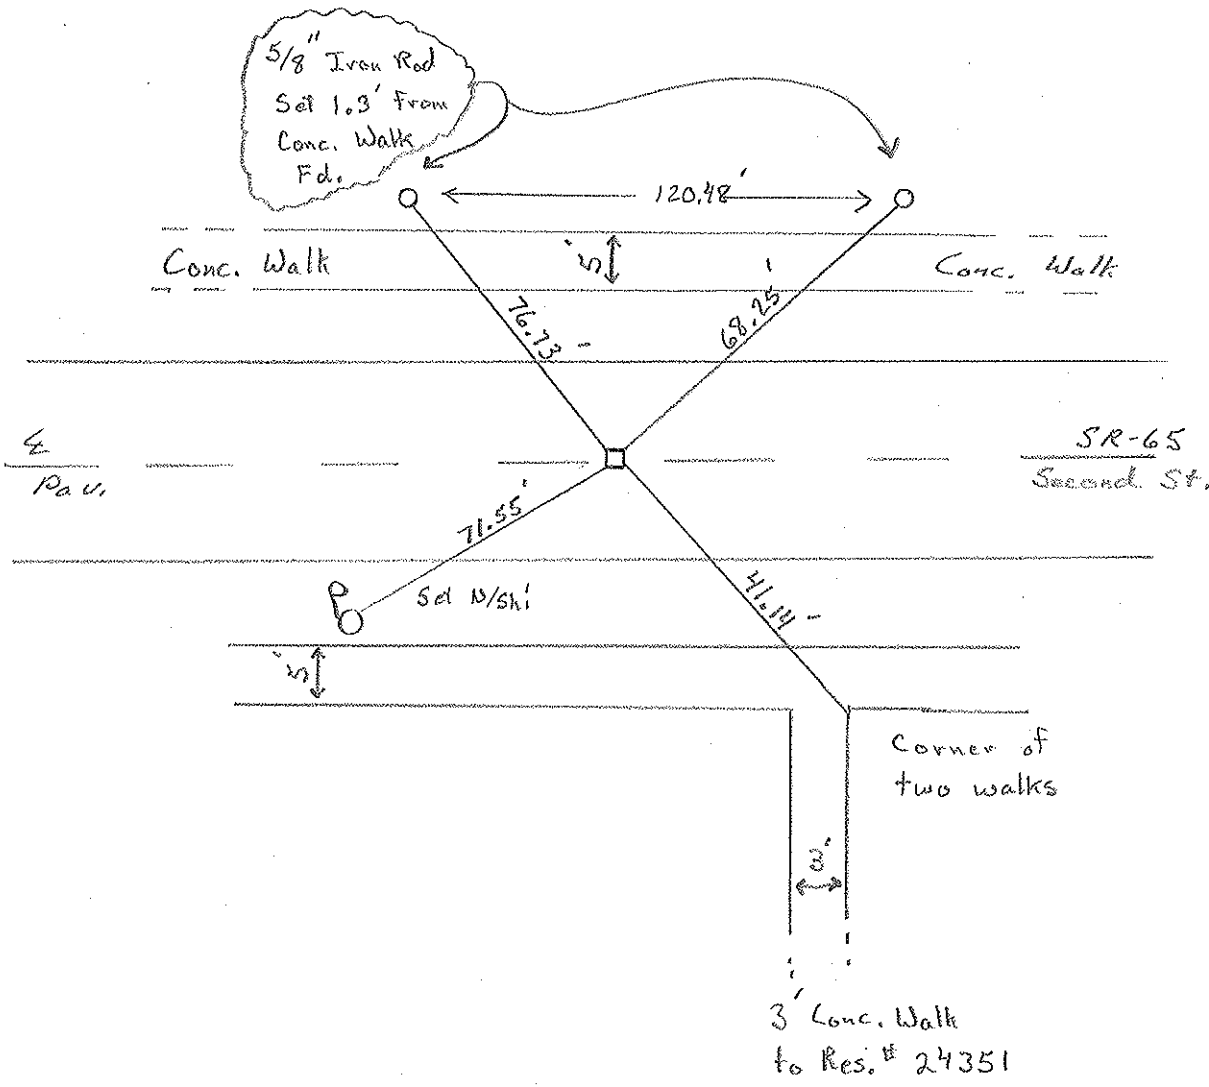 5/8" Iron Rod
Set 1.3' From
Conc. Walk
Fd.
120.48'
Conc. Walk
5'
Conc. Walk
76.73'
68.25'
℄
Pav.
SR-65
Second St.
71.55'
Set N/Shi
41.14'
5'
Corner of
two walks
3'
3' Conc. Walk
to Res. # 24351